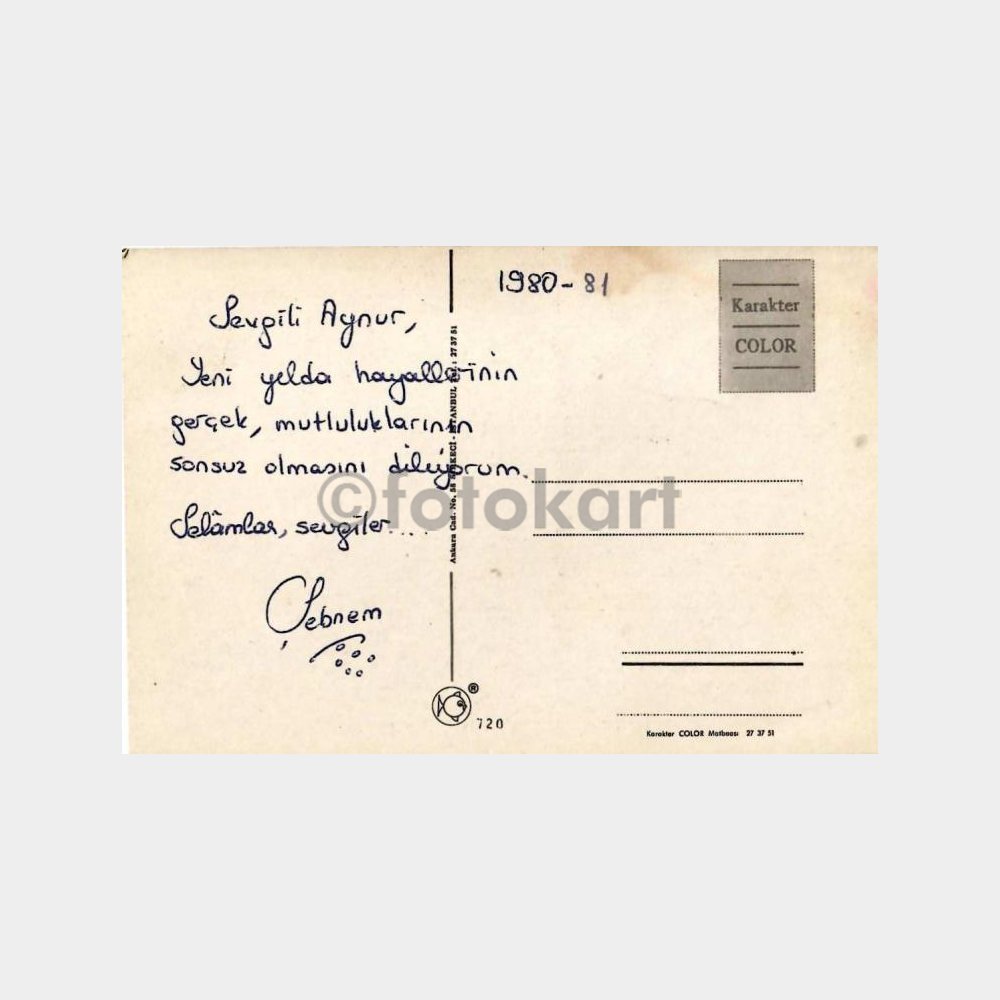 Sevgili Aynur,
Yeni yılda hayallerinin
gerçek, mutluluklarının
sonsuz olmasını diliyorum.
Selâmlar, sevgiler....
Şebnem
1980-81
Karakter
COLOR
Ankara Cad. No. 58 SİRKECİ - İSTANBUL Tel.: 27 37 51
©fotokart
®
720
Karakter COLOR Matbaası 27 37 51